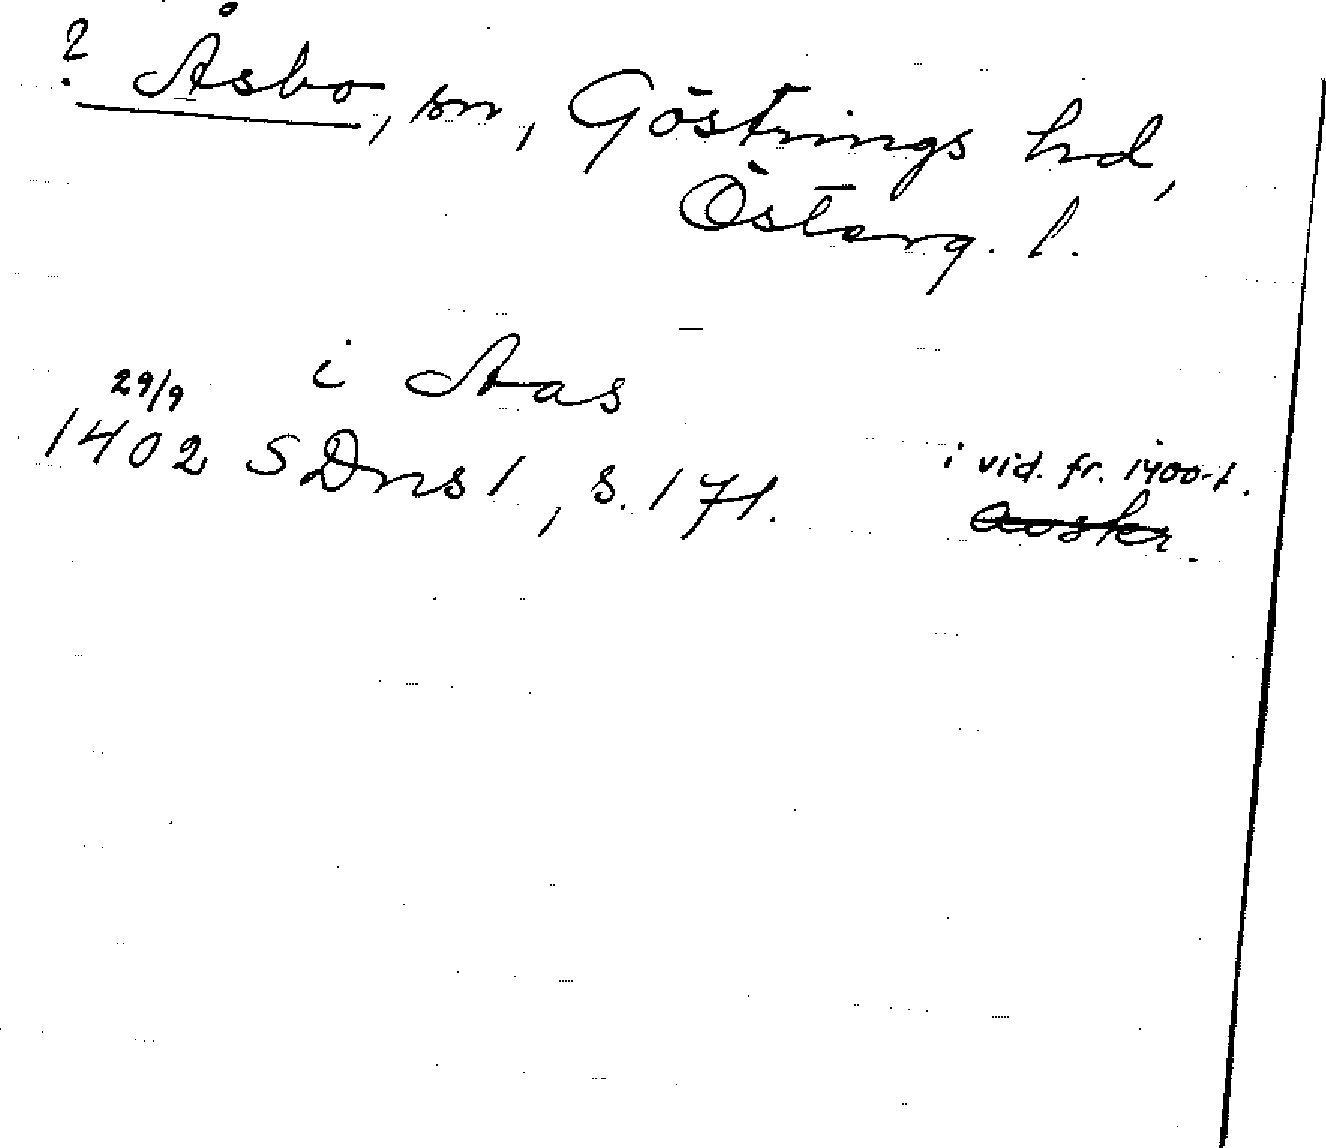 ? Åsbo, sn, Göstrings hd,
Österg. l.
i Aas
29/9
1402 SDns 1, s. 171.
i vid. fr. 1400-t.
avskr.